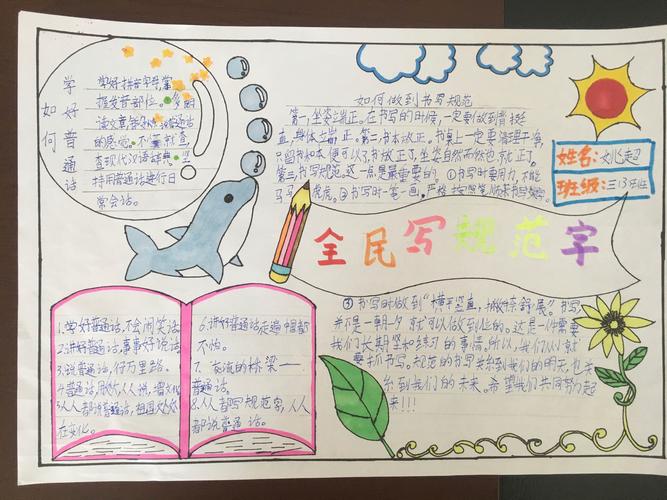 如何
学好普通话
学好拼音字母掌
握发音部位。多朗
读文章
的感觉。
查现代汉语辞典。坚
持用普通话进行日
常会话。
如何做到书写规范
第一,坐姿端正。在书写的时候,一定要做到背挺
直,身体端正。第二,书本放正。书桌上一定要清理干净,
只留书和本便可以了,书放正了,坐姿自然而然也就正了。
第三,书写规范。这一点是最重要的。①书写时要用力,不能
马马虎虎。②书写时一笔一画,严格按照笔顺来书写
姓名:刘
班级:三13班
全民写规范字
1.学好普通话,不会闹笑话
2.讲好普通话,事事好说话
3.说普通话,行万里路
4.普通话,
5.人人都说普通话,祖国
6.讲好普通话走遍中国都
不怕。
7.交流的桥梁——
普通话。
8.人人都写规范字,人人
都说普通话。
③书写时做到“横平竖直,撇捺舒展”。书写
并不是一朝一夕就可以做到位的。这是一件需要
我们长期坚和练习的事情,所以,我们从小就
要抓书写。规范的书写关乎到我们的明天,也关
乎到我们的未来。希望我们共同努力起
来!!!